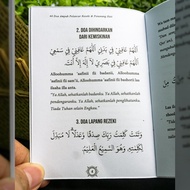 2. DOA DIHINDARKAN
DARI KEMISKINAN
اَللّٰهُمَّ عَافِنِيْ فِيْ بَدَنِيْ اَللّٰهُمَّ عَافِنِيْ فِيْ سَمْعِيْ
اَللّٰهُمَّ عَافِنِيْ فِيْ بَصَرِيْ لَا إِلٰهَ إِلَّا أَنْتَ
Allaahumma 'aafinii fii badanii, Allaahumma 'aafinii fii
sam'ii, Allaahumma 'aafinii fii basharii laa
ilaa illa anta.
"Ya Allah, sehatkanlah badanku. Ya Allah, sehatkanlah
pendengaranku. Ya Allah, sehatkanlah penglihatanku.
Tiada Tuhan selain Engkau"
3. DOA LAPANG REZEKI
وَتَمَّتْ كَلِمَتُ رَبِّكَ صِدْقًا وَعَدْلًا لَا مُبَدِّلَ
لِكَلِمٰتِهِ وَهُوَ السَّمِيْعُ الْعَلِيْمُ